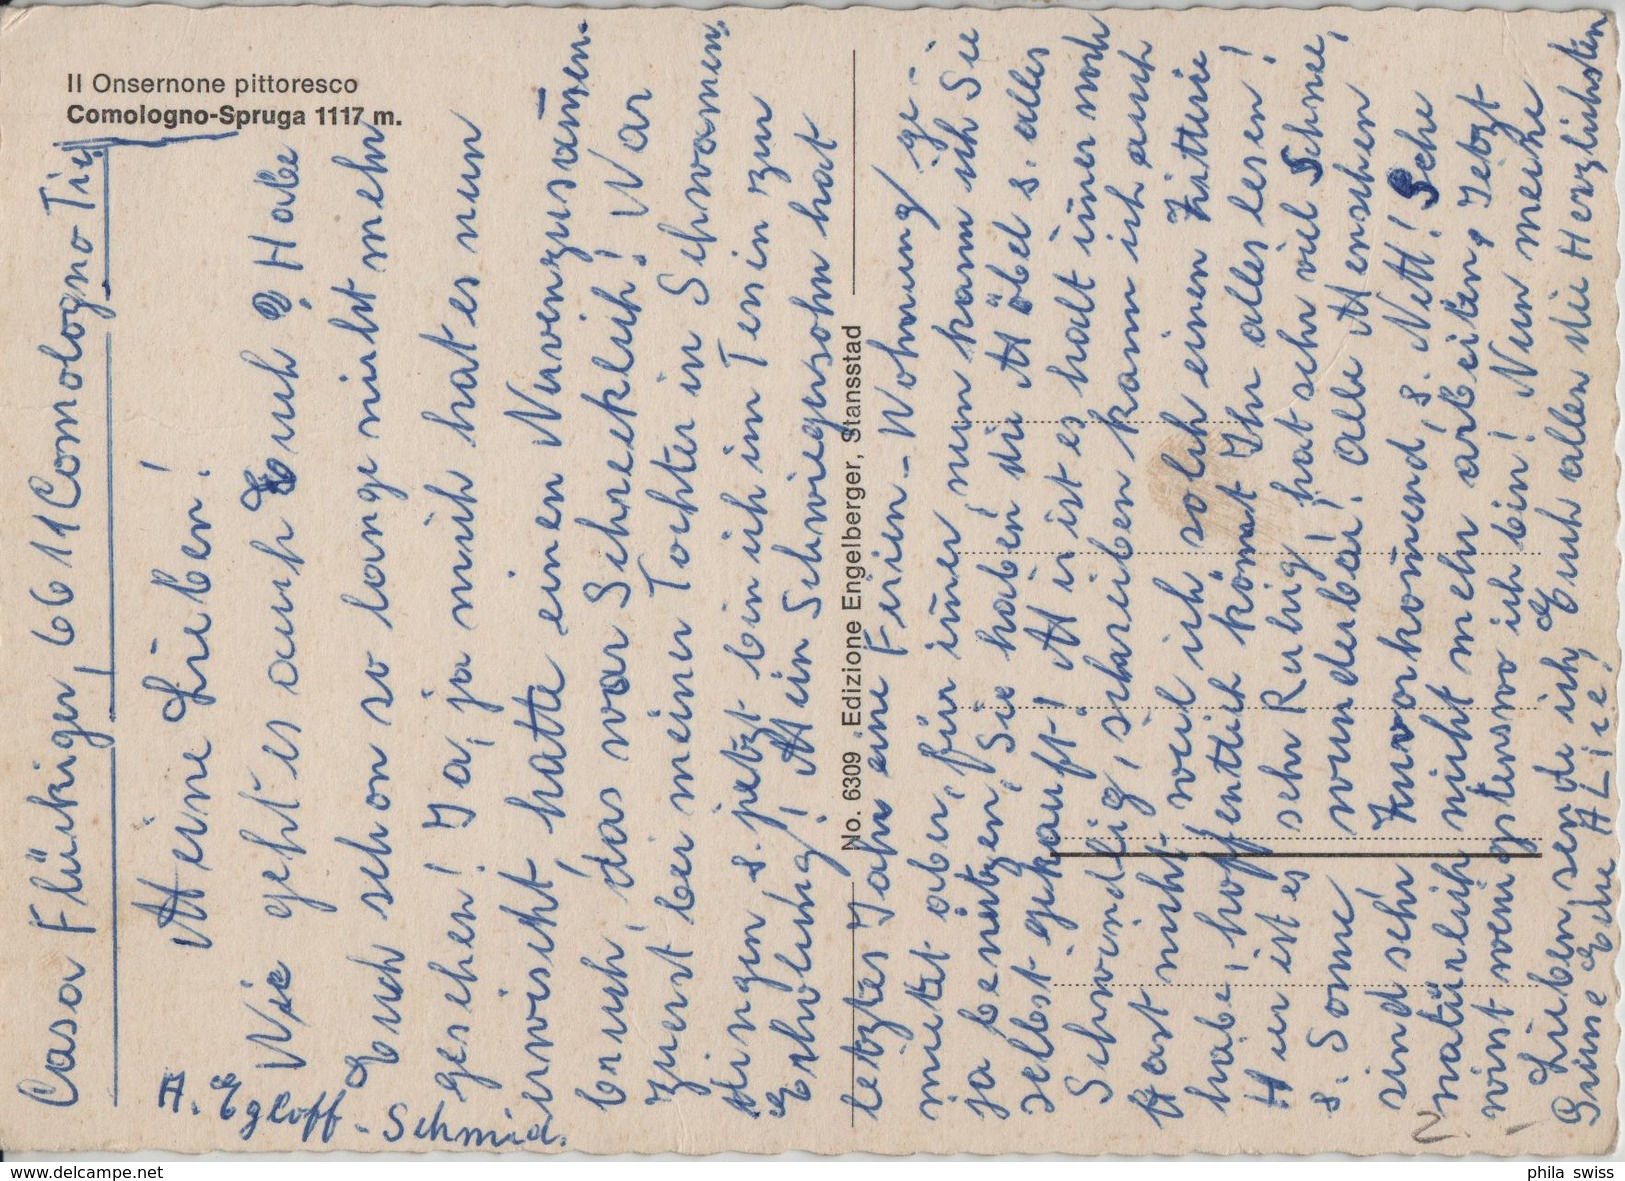 Il Onsernone pittoresco
Comologno-Spruga 1117 m.
No. 6309 Edizione Engelberger, Stansstad
Casa Flükiger, 6611 Comologno Tic
Meine Lieben!
Wie geht es auch Euch? Habe
Euch schon so lange nicht mehr
gesehen! Ja, ja mich hat es nun
erwischt, hatte einen Nervenzusam̄en-
bruch, das war Schrecklich! War
zuerst bei meiner Tochter in Schwamen-
dingen s. jetzt bin ich im Tessin zur
Erholung! Mein Schwiegersohn hat
letztes Jahr eine Ferien-Wohnung ge-
mietet aber für im̄er, nun kann ich Sie
ja benützen, Sie haben die Möbel s. alles
selbst gekauft! Mir ist es halt im̄er noch
Schwindlig, schreiben kann ich auch
fast nicht weil ich solch einen Zitterie
habe, hoffentlich kön̄t Ihr alles lesen!
Hier ist es sehr Ruhig! hat sehr viel Schnee,
s. Sonne wunderbar! alle Menschen
sind sehr Zuvorkom̄end, s. Nett! Gehe
natürlich nicht mehr arbeiten, Jetzt
wist wenigstens wo ich bin! Nun meine
Lieben, sende ich Euch allen die Herzlichsten
Grüsse Eure Alice!
A. Egloff-
Schmid.
delcampe.net
phila swiss